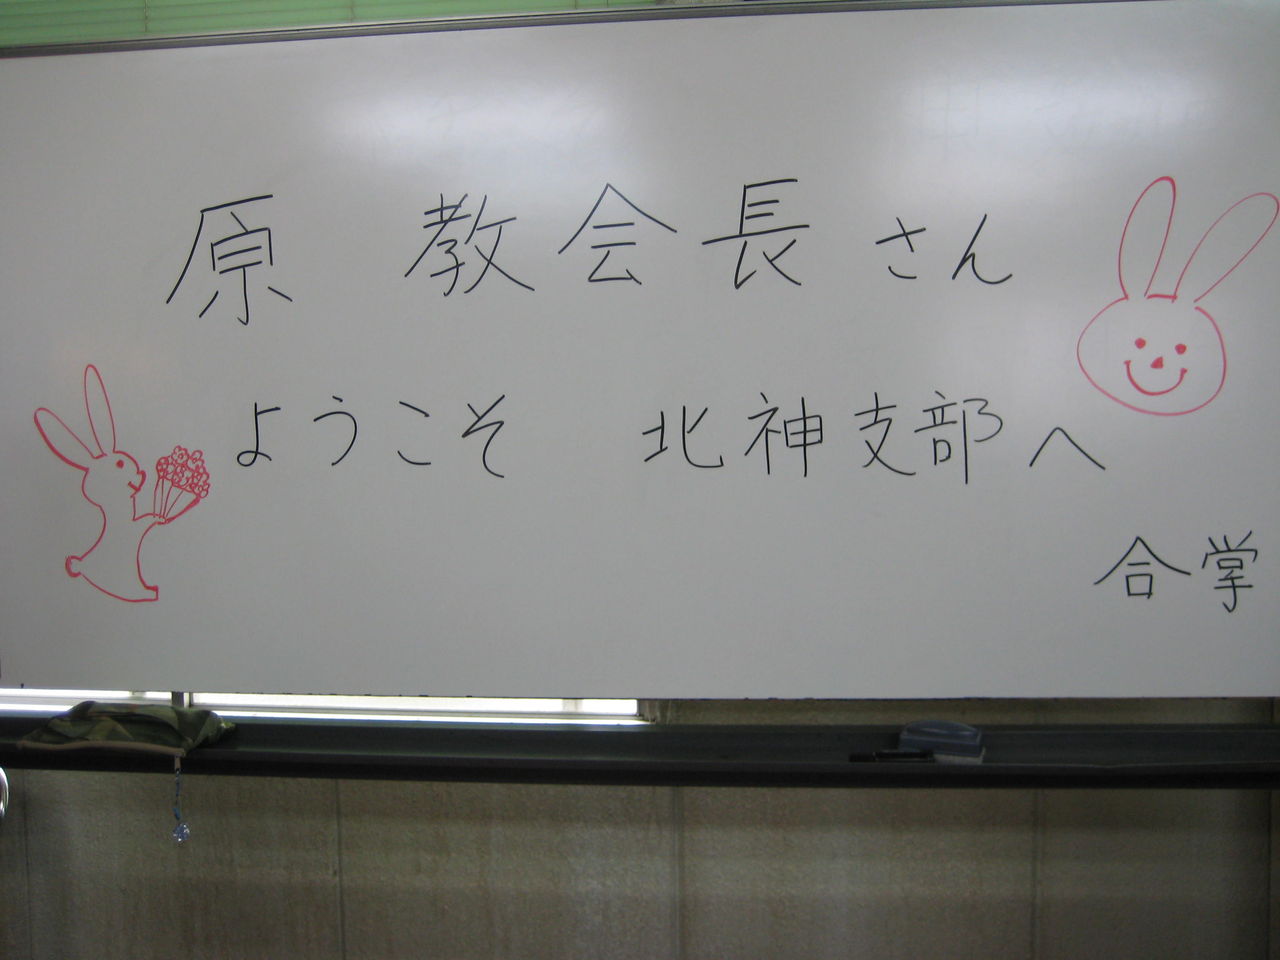 原 教会長さん
ようこそ 北神支部へ
合掌